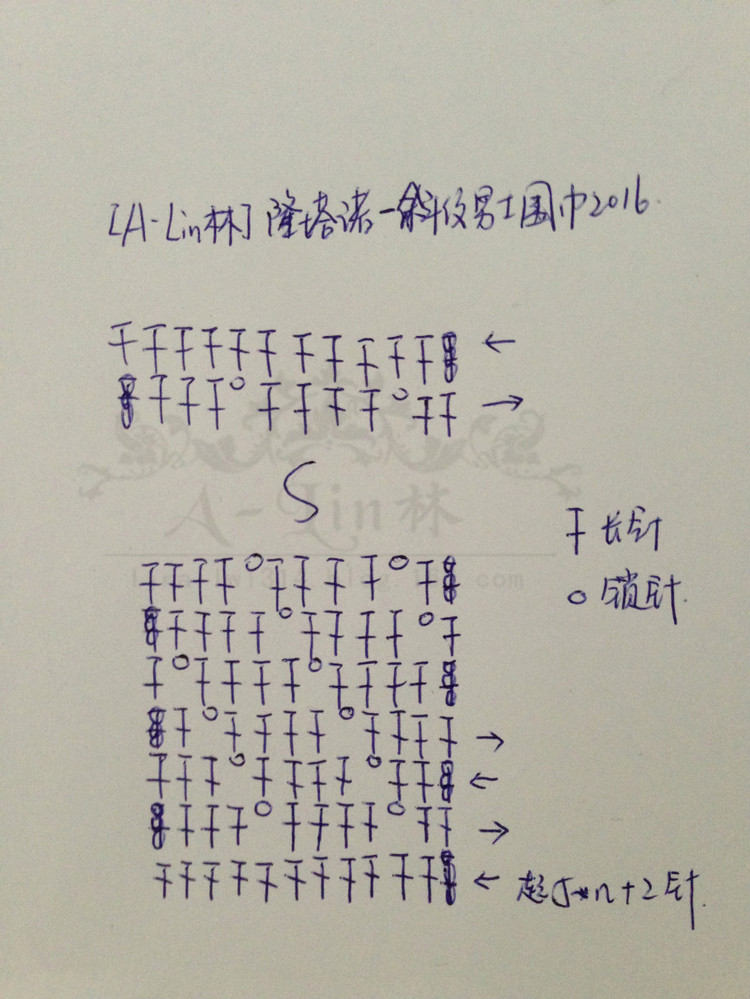 [A-Lin林]隆塔诺-斜纹男士围巾2016.
←
→
S
A-Lin林
干 长针
o 锁针.
→
←
→
← 起5*n+2针.